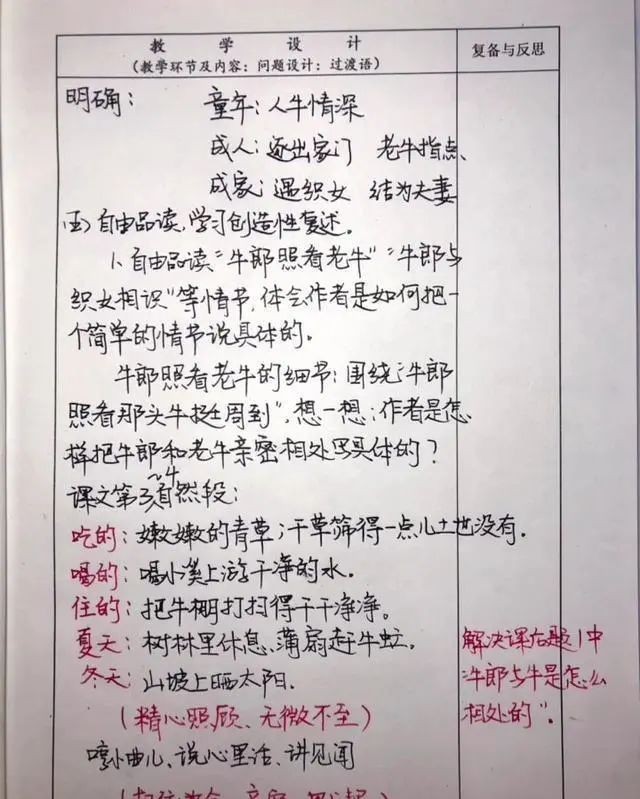 教 学 设 计
(教学环节及内容：问题设计：过渡语)
复备与反思
明确：  童年：人牛情深
成人：逐出家门  老牛指点、
成家：遇织女  结为夫妻
(五)自由品读,学习创造性复述。
1、自由品读"牛郎照看老牛""牛郎与
织女相识"等情节,体会作者是如何把一
个简单的情节说具体的。
牛郎照看老牛的细节：围绕"牛郎
照看那头牛挺周到",想一想：作者是怎
样把牛郎和老牛亲密相处写具体的？
~4
课文第3自然段：
吃的：嫩嫩的青草；干草筛得一点儿土也没有.
喝的：喝小溪上游干净的水.
住的：把牛棚打扫得干干净净。
夏天：树林里休息、蒲扇赶牛虻.
冬天：山坡上晒太阳.
(精心照顾、无微不至)
哼小曲儿、说心里话、讲见闻
解决课后题1中
"牛郎与牛是怎么
相处的".